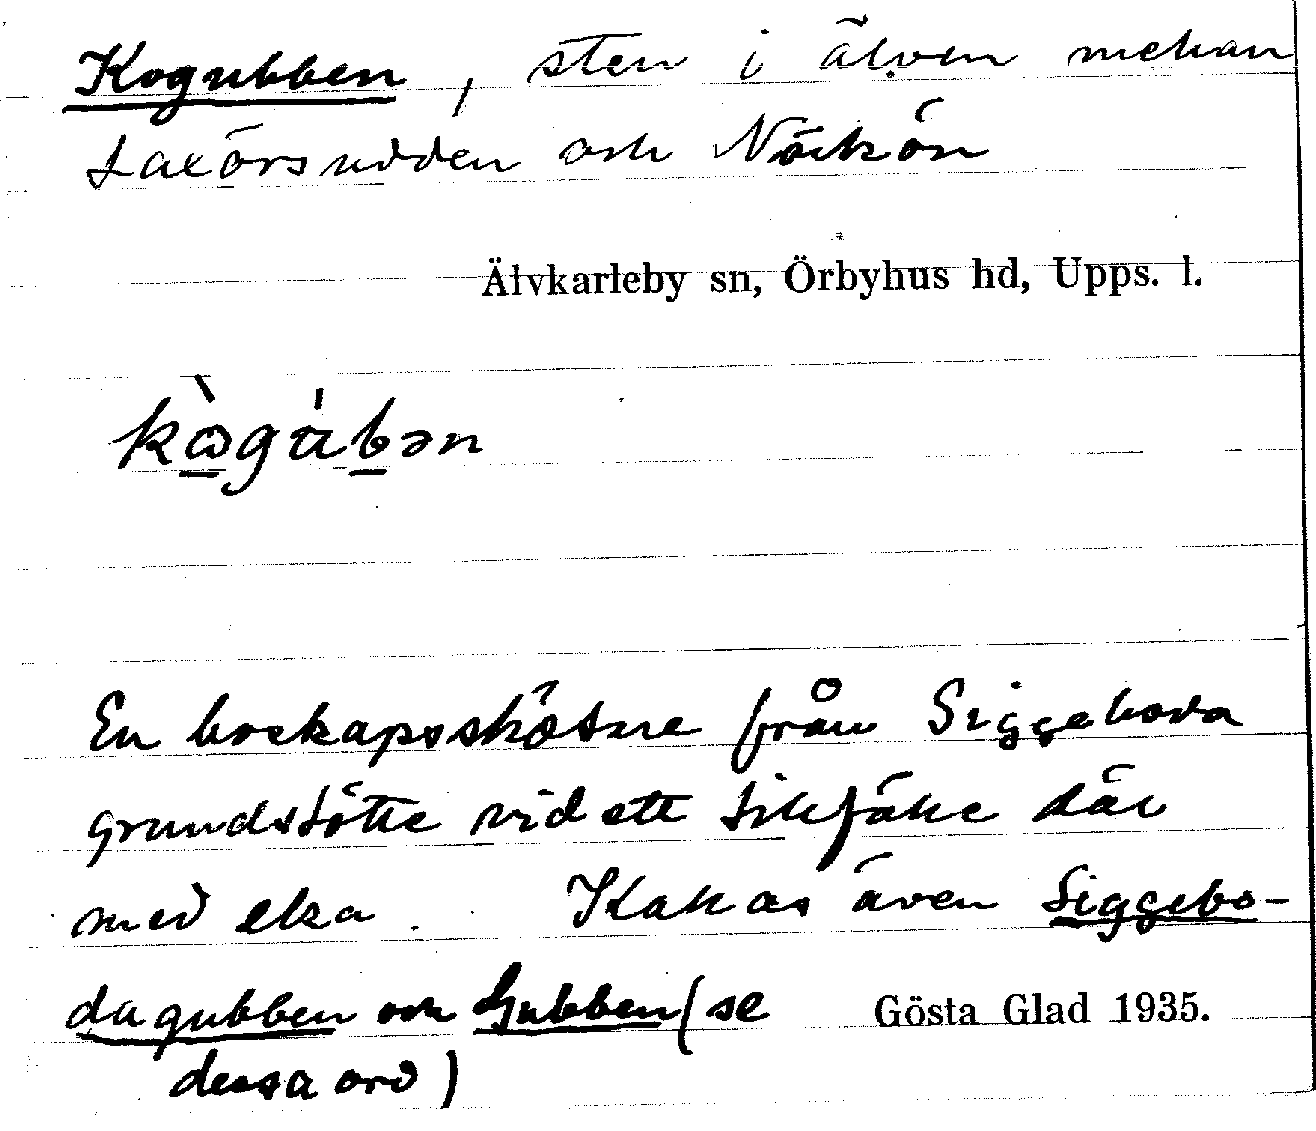 Kogubben, sten i älven mellan
Laxörsudden och Näckön
Älvkarleby sn, Örbyhus hd, Upps. l.
kògúbən
En boskapsskötare från Siggeboda
grundstötte vid ett sikfiske där
med eka. Kallas även Siggebo-
dagubben och Gubben (se
dessa ord)
Gösta Glad 1935.